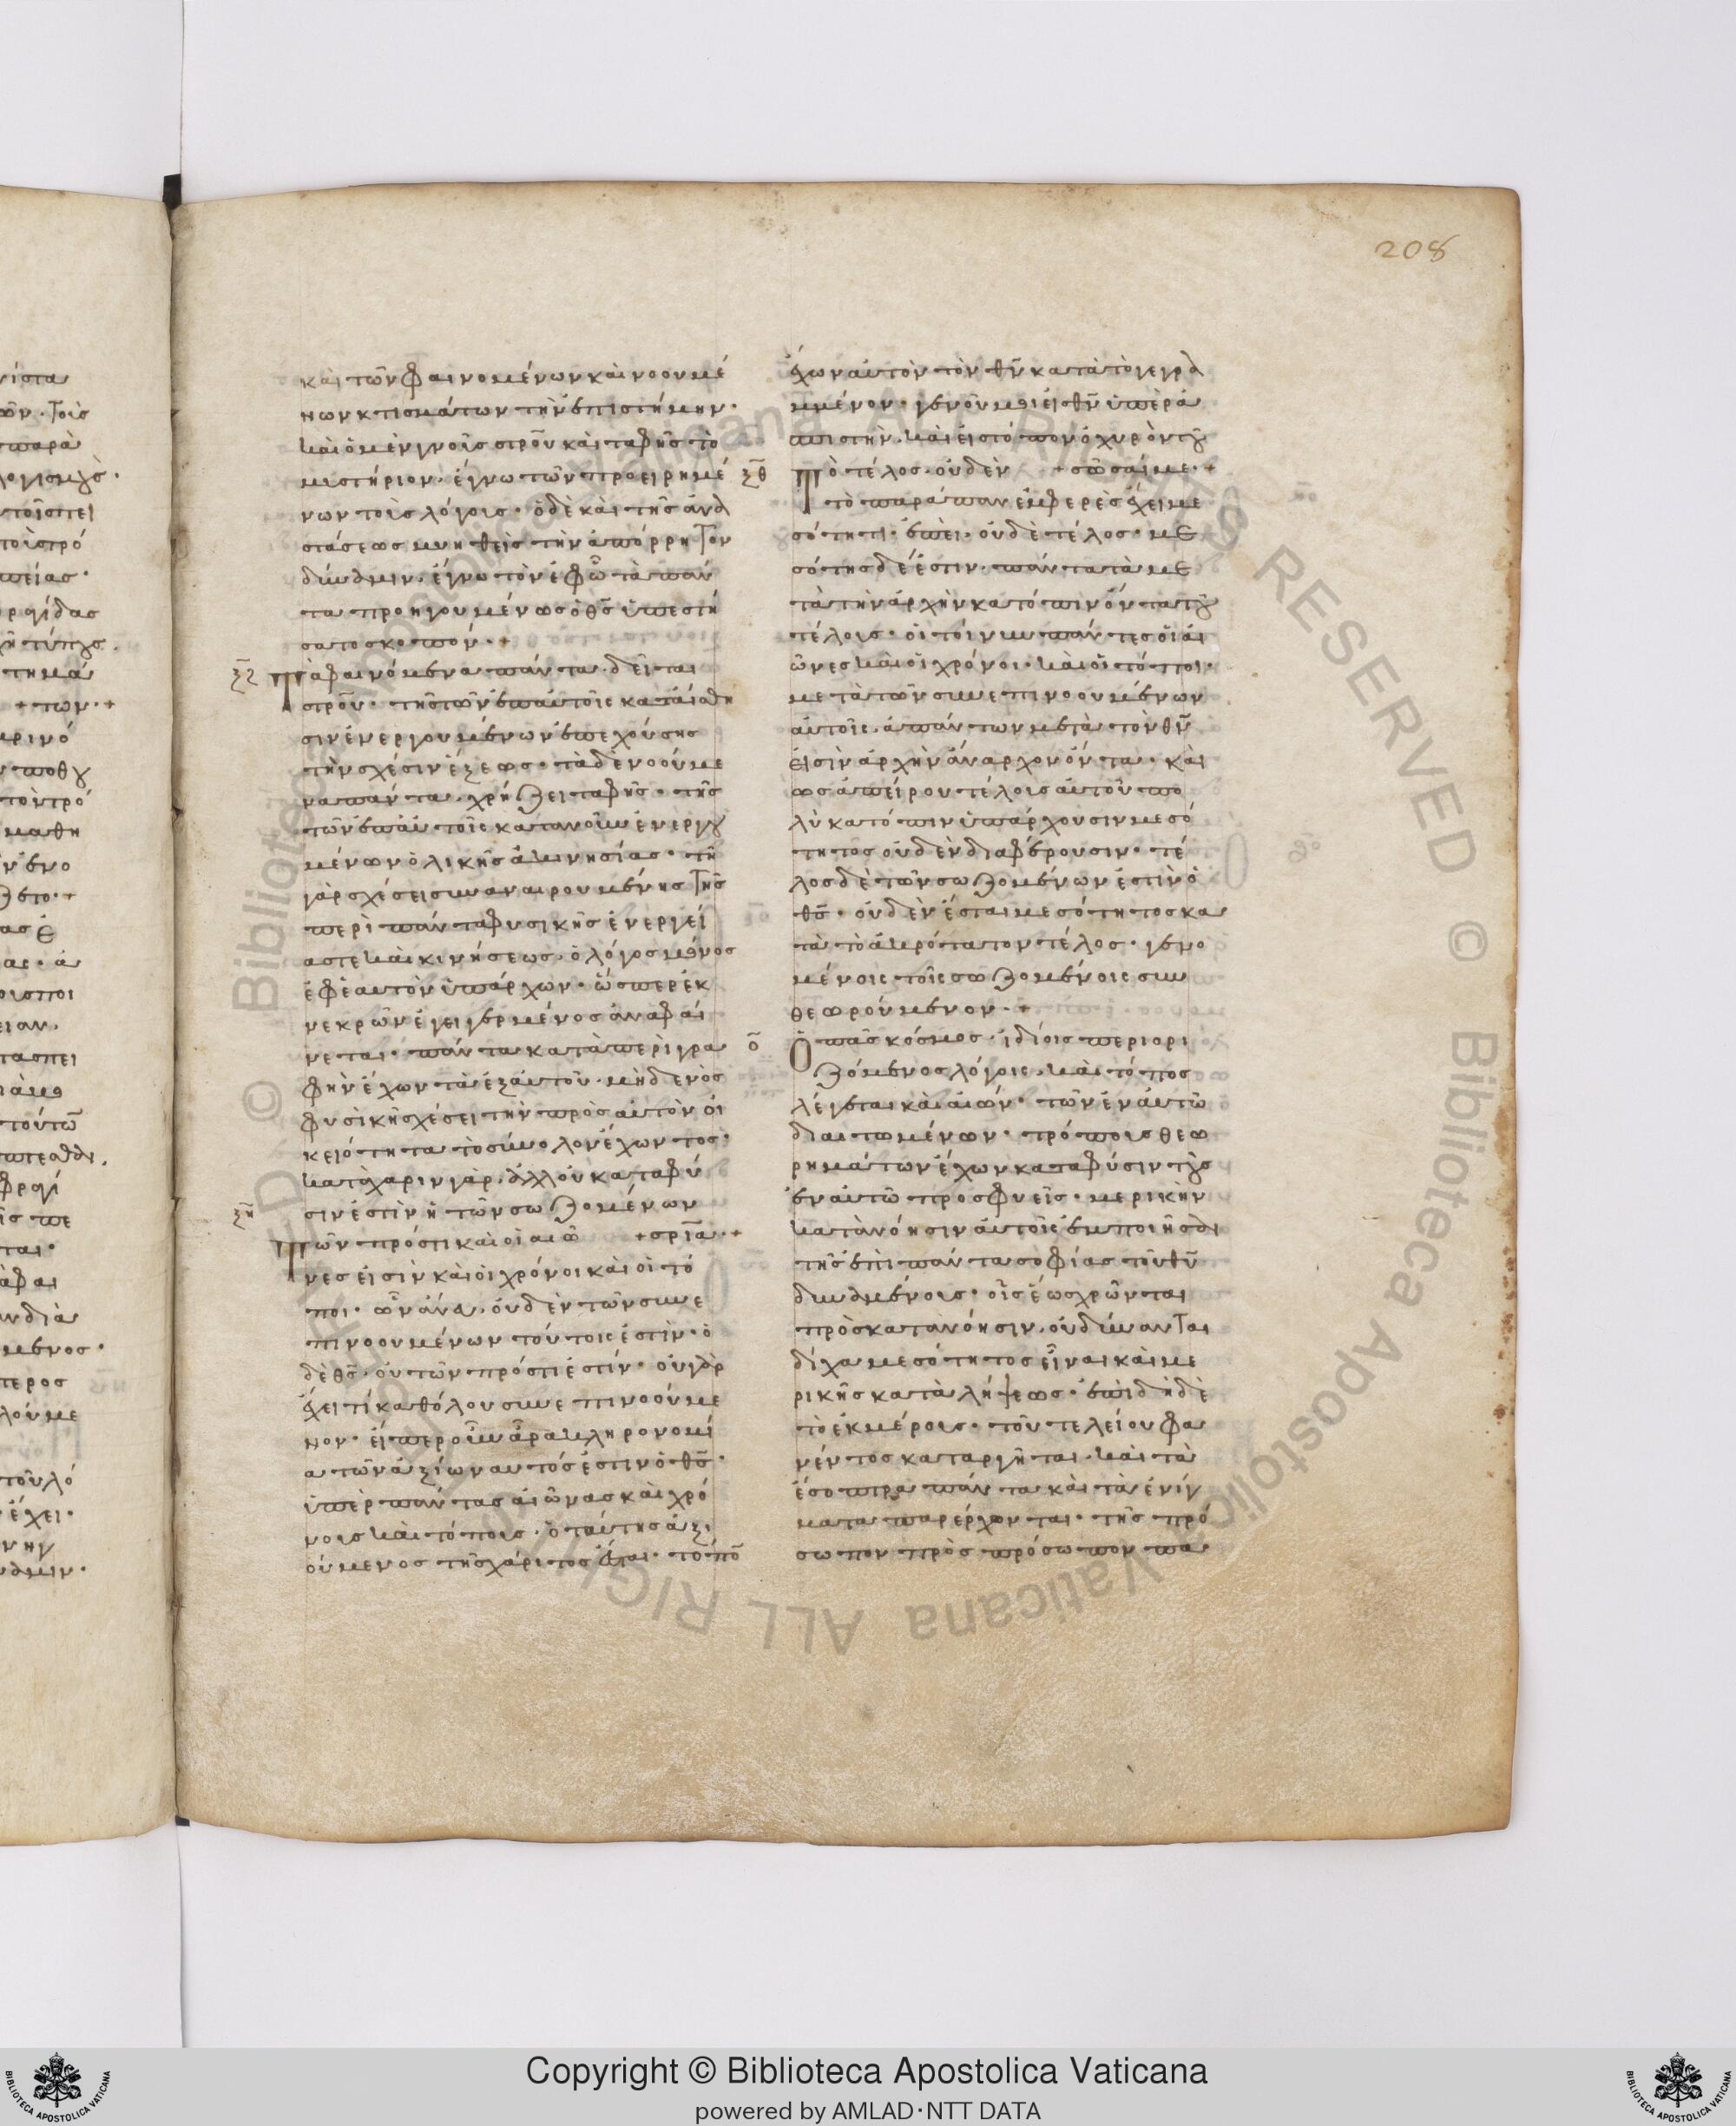 208
καὶ τῶν φαινομένων καὶ νοουμέ
νων κτισμάτων τὴν ἐπιστήμην·
καὶ ὁ μὲν γνοὺς στροῦ καὶ ταφῆς τὸ
μυστήριον· ἔγνω τῶν προειρημέ
νων τοὺς λόγους· ὁ δὲ καὶ τῆς ἀνα
στάσεως μυηθεὶς τὴν ἀπόρρητον
δύναμιν· ἔγνω τὸν ἐφ ὧ τὰ πάν
τα προηγουμένως ὁ θς ὑπεστή
σατο σκοπόν·+
ξζ
Τὰ φαινόμενα πάντα δεῖται
στροῦ· τῆς τῶν ἐπ αὐτοῖς κατ αἴσθη
σιν ἐνεργουμένων ἐπεχούσης
τὴν σχέσιν ἕξεως· τὰ δὲ νοούμε
να πάντα χρήζει ταφῆς· τῆς
τῶν ἐπ αὐτοῖς κατὰ νοῦν ἐνεργου
μένων ὁλικῆς ἀκινησίας· τῇ
γὰρ σχέσει συναναιρουμένης τῆς
περὶ πάντα φυσικῆς ἐνεργεί
ας τε καὶ κινήσεως· ὁ λόγος μόνος
ἐφ ἑαυτὸν ὑπάρχων· ὥσπερ ἐκ
νεκρῶν ἐγειγερμένος ἀναφαί
νεται· πάντα κατὰ περιγρα
φὴν ἔχων τὰ ἐξ αὐτοῦ· μηδενὸς
φυσικῇ σχέσει τὴν πρὸς αὐτὸν οἰ
κειότητα τὸ σύνολον ἔχοντος·
κατὰ χάριν γὰρ ἀλλ οὐ κατὰ φύ
σιν ἐστὶν ἡ τῶν σωζομένων
+σρία·+
ξη
Τῶν πρός τι καὶ οἱ αἰῶ
νές εἰσιν καὶ οἱ χρόνοι καὶ οἱ τό
ποι· ὧν ἄνευ οὐδὲν τῶν συνε
πινοουμένων τούτοις ἐστὶν· ὁ
δὲ θς οὐ τῶν πρός τι ἐστίν· οὐ γὰρ
ἔχει τί καθόλου συνεπινοούμε
νον· εἴπερ οὖν ἄρα κληρονομί
α τῶν ἀξίων αὐτός ἐστιν ὁ θς·
ὑπὲρ πάντας αἰῶνας καὶ χρό
νους καὶ τόπους· ὁ ταύτης ἀξι
ούμενος τῆς χάριτος ἔσται· τόπον
ἔχων αὐτὸν τὸν θν κατὰ τὸ γεγρα
μμένον· γενοῦ μοι εἰς θν ὑπερα
σπιστὴν καὶ εἰς τόπον ὀχυρὸν τοῦ
+σῶσαί με·+
ξθ
Τὸ τέλος οὐδὲν
τὸ παράπαν ἐμφερὲς ἔχει με
σότητι· ἐπεὶ οὐδὲ τέλος· με
σότης δέ ἐστιν· πάντα τὰ με
τὰ τὴν ἀρχὴν κατόπιν ὄντα τοῦ
τέλους· οἱ τοίνυν πάντες οἱ αἰ
ῶνες καὶ οἱ χρόνοι· καὶ οἱ τόποι·
μετὰ τῶν συνεπινοουμένων
αὐτοῖς ἁπάντων μετὰ τὸν θν
εἰσὶν ἀρχὴν ἄναρχον ὄντα· καὶ
ὡς ἀπείρου τέλους αὐτοῦ πο
λὺ κατόπιν ὑπάρχουσιν μεσό
τητος οὐδὲν διαφέρουσιν· τέ
λος δὲ τῶν σωζομένων ἐστὶν ὁ
θς· οὐδὲν ἔσται μεσότητος κα
τὰ τὸ ἀκρότατον τέλος· γενο
μένοις τοῖς σωζομένοις συν
θεωρούμενον·+
ο
Ὁ πᾶς κόσμος· ἰδίοις περιορι
ζόμενος λόγοις· καὶ τόπος
λέγεται καὶ αἰών· τῶν ἐν αὐτῷ
διαιτωμένων· τρόπους θεω
ρημάτων ἔχων κατὰ φύσιν τοὺς
ἐν αὐτῷ προσφυεῖς· μερικὴν
κατανόησιν αὐτοῖς ἐμποιῆσαι
τῆς ἐπὶ πάντα σοφίας τοῦ θυ
δυναμένους· οἷς ἕως χρῶνται
πρὸς κατανόησιν· οὐ δύνανται
δίχα μεσότητος εἶναι καὶ με
ρικῆς καταλήψεως· ἐπειδὴ δὲ
τὸ ἐκ μέρους· τοῦ τελείου φα
νέντος καταργῆται· καὶ τὰ
ἔσοπτρα πάντα καὶ τὰ ἐνίγ
ματα παρέρχονται· τῆς πρό
σωπον πρὸς πρόσωπον πα
Copyright © Biblioteca Apostolica Vaticana
powered by AMLAD·NTT DATA